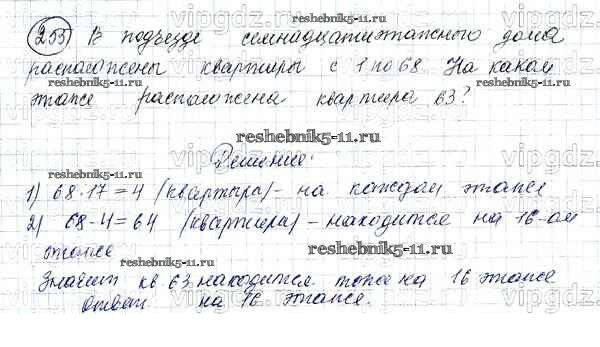 253) В подъезде семнадцатиэтажного дома
расположены квартиры с 1 по 68. На каком
этаже расположена квартира 63?
Решение:
1) 68:17=4 (квартыра) - на каждом этаже
2) 68-4=64 (квартира) - находится на 16-ом
этаже
Значит кв. 63 находится тоже на 16 этаже
Ответ на 16 этаже.
reshebnik5-11.ru
reshebnik5-11.ru
reshebnik5-11.ru
reshebnik5-11.ru
reshebnik5-11.ru
reshebnik5-11.ru